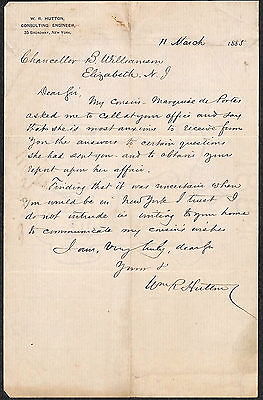 W. R. HUTTON,
CONSULTING ENGINEER,
35 BROADWAY, NEW YORK.
11 March 1885
Chancellor B. Williamson
Elizabeth N. J
Dear Sir.
My cousin Marquise de Portes
asked me to call at your office and say
that she is most anxious to receive from
you the answers to certain questions
she had sent you and to obtain your
report upon her affairs.
Finding that it was uncertain when
you would be in New York I trust I
do not intrude in writing to your home
to communicate my cousin's wishes
I am, Very truly, dear Sir
Yours &
Wm R. Hutton